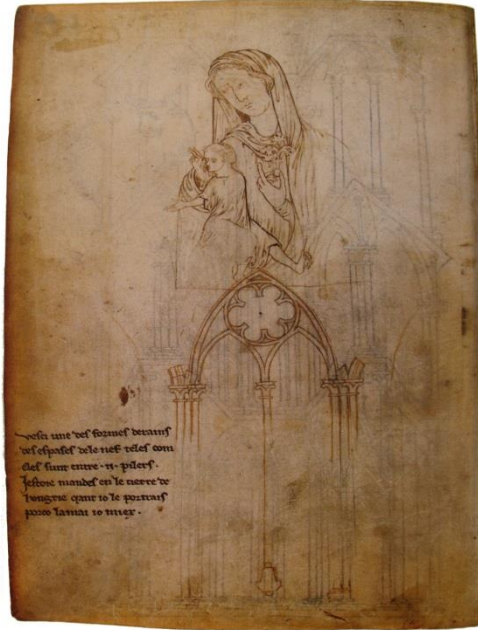 vesci une des formes derains
des espases dele nef teles com
eles sunt entre ·ii· pilers·
Jestoie mandes en le tierre de
hongrie qant io le portrais
porco lamai io miex·